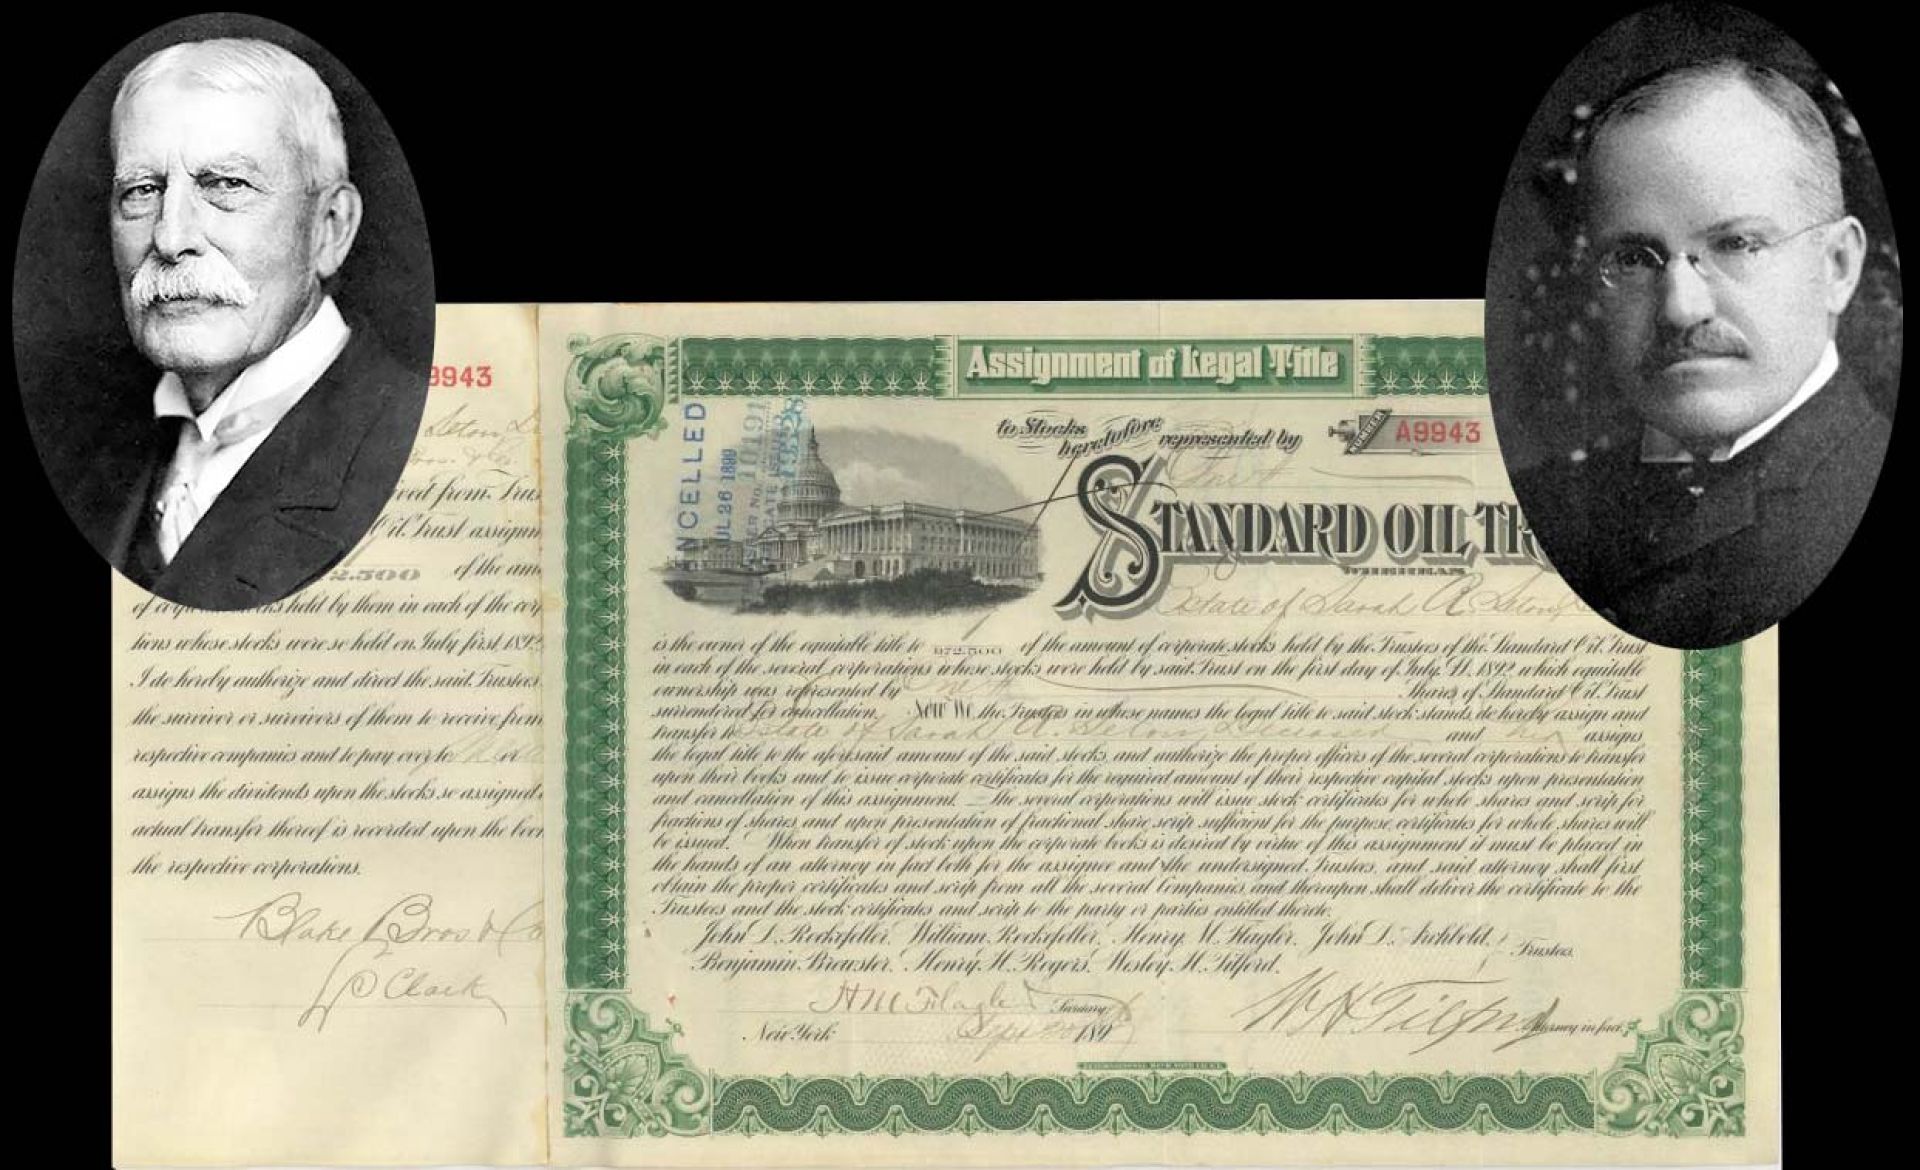 9943
ived from Trus
Oil Trust assignm
72.500 of the am
of corp held by them in each of the corp
tions whose stocks were so held on July first 1892
I do hereby authorize and direct the said Trustees
the survivor or survivors of them to receive from
respective companies and to pay over to or
assigns the dividends upon the stocks so assigned
actual transfer thereof is recorded upon the book
the respective corporations.
Blake Bros & Co
Clark
Assignment of Legal Title
NCELLED
JUL 26 1899
to Stocks heretofore represented by
NUMBER A9943
STANDARD OIL TR
WHEREAS
Estate of Sarah A.
is the owner of the equitable title to 972.500 of the amount of corporate stocks held by the Trustees of the Standard Oil Trust
in each of the several corporations whose stocks were held by said Trust on the first day of July A.D. 1892 which equitable
ownership was represented by Shares of Standard Oil Trust
surrendered for cancellation. Now We the Trustees in whose names the legal title to said stock stands, do hereby assign and
transfer to Estate of Sarah A. deceased and assigns
the legal title to the aforesaid amount of the said stocks, and authorize the proper officers of the several corporations to transfer
upon their books and to issue corporate certificates for the required amount of their respective capital stocks upon presentation
and cancellation of this assignment. The several corporations will issue stock certificates for whole shares and scrip for
fractions of shares and upon presentation of fractional share scrip sufficient for the purpose, certificates for whole shares will
be issued. When transfer of stock upon the corporate books is desired by virtue of this assignment it must be placed in
the hands of an attorney in fact both for the assignee and the undersigned Trustees, and said attorney shall first
obtain the proper certificates and scrip from all the several Companies, and thereupon shall deliver the certificate to the
Trustees and the stock certificates and scrip to the party or parties entitled thereto.
John D. Rockefeller, William Rockefeller, Henry M. Flagler, John D. Archbold, Trustees.
Benjamin Brewster, Henry H. Rogers, Wesley H. Tilford.
H M Flagler Secretary
W H Tilford Attorney in fact.
New York Sept 189